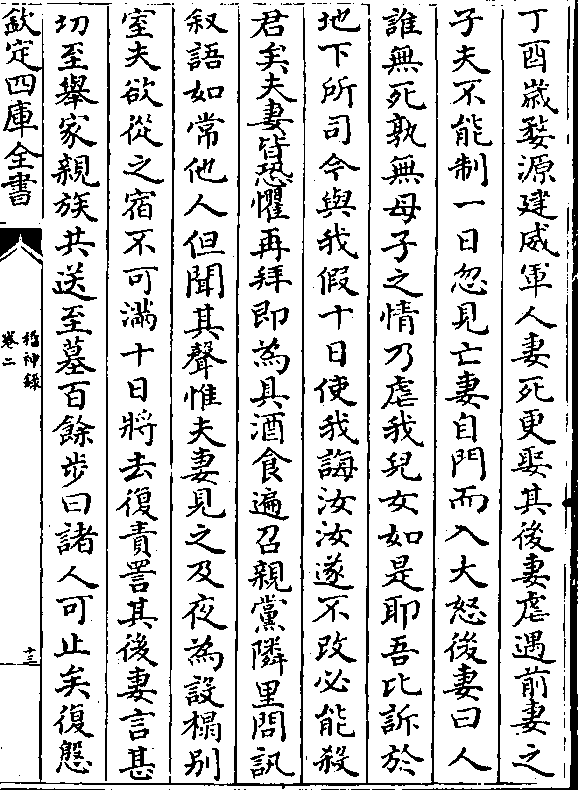 丁酉歲婺源建威軍人妻死更娶其後妻虐遇前妻之
子夫不能制一日忽見亡妻自門而入大怒後妻曰人
誰無死孰無母子之情乃虐我兒女如是耶吾比訴於
地下所司今與我假十日使我誨汝汝遂不改必能殺
君矣夫妻皆恐懼再拜即為具酒食遍召親黨隣里問訊
叙語如常他人但聞其聲惟夫妻見之及夜為設榻别
室夫欲從之宿不可滿十日將去復責詈其後妻言甚
切至舉家親族共送至墓百餘步曰諸人可止矣復慇
欽定四庫全書
稽神錄
卷二
十三